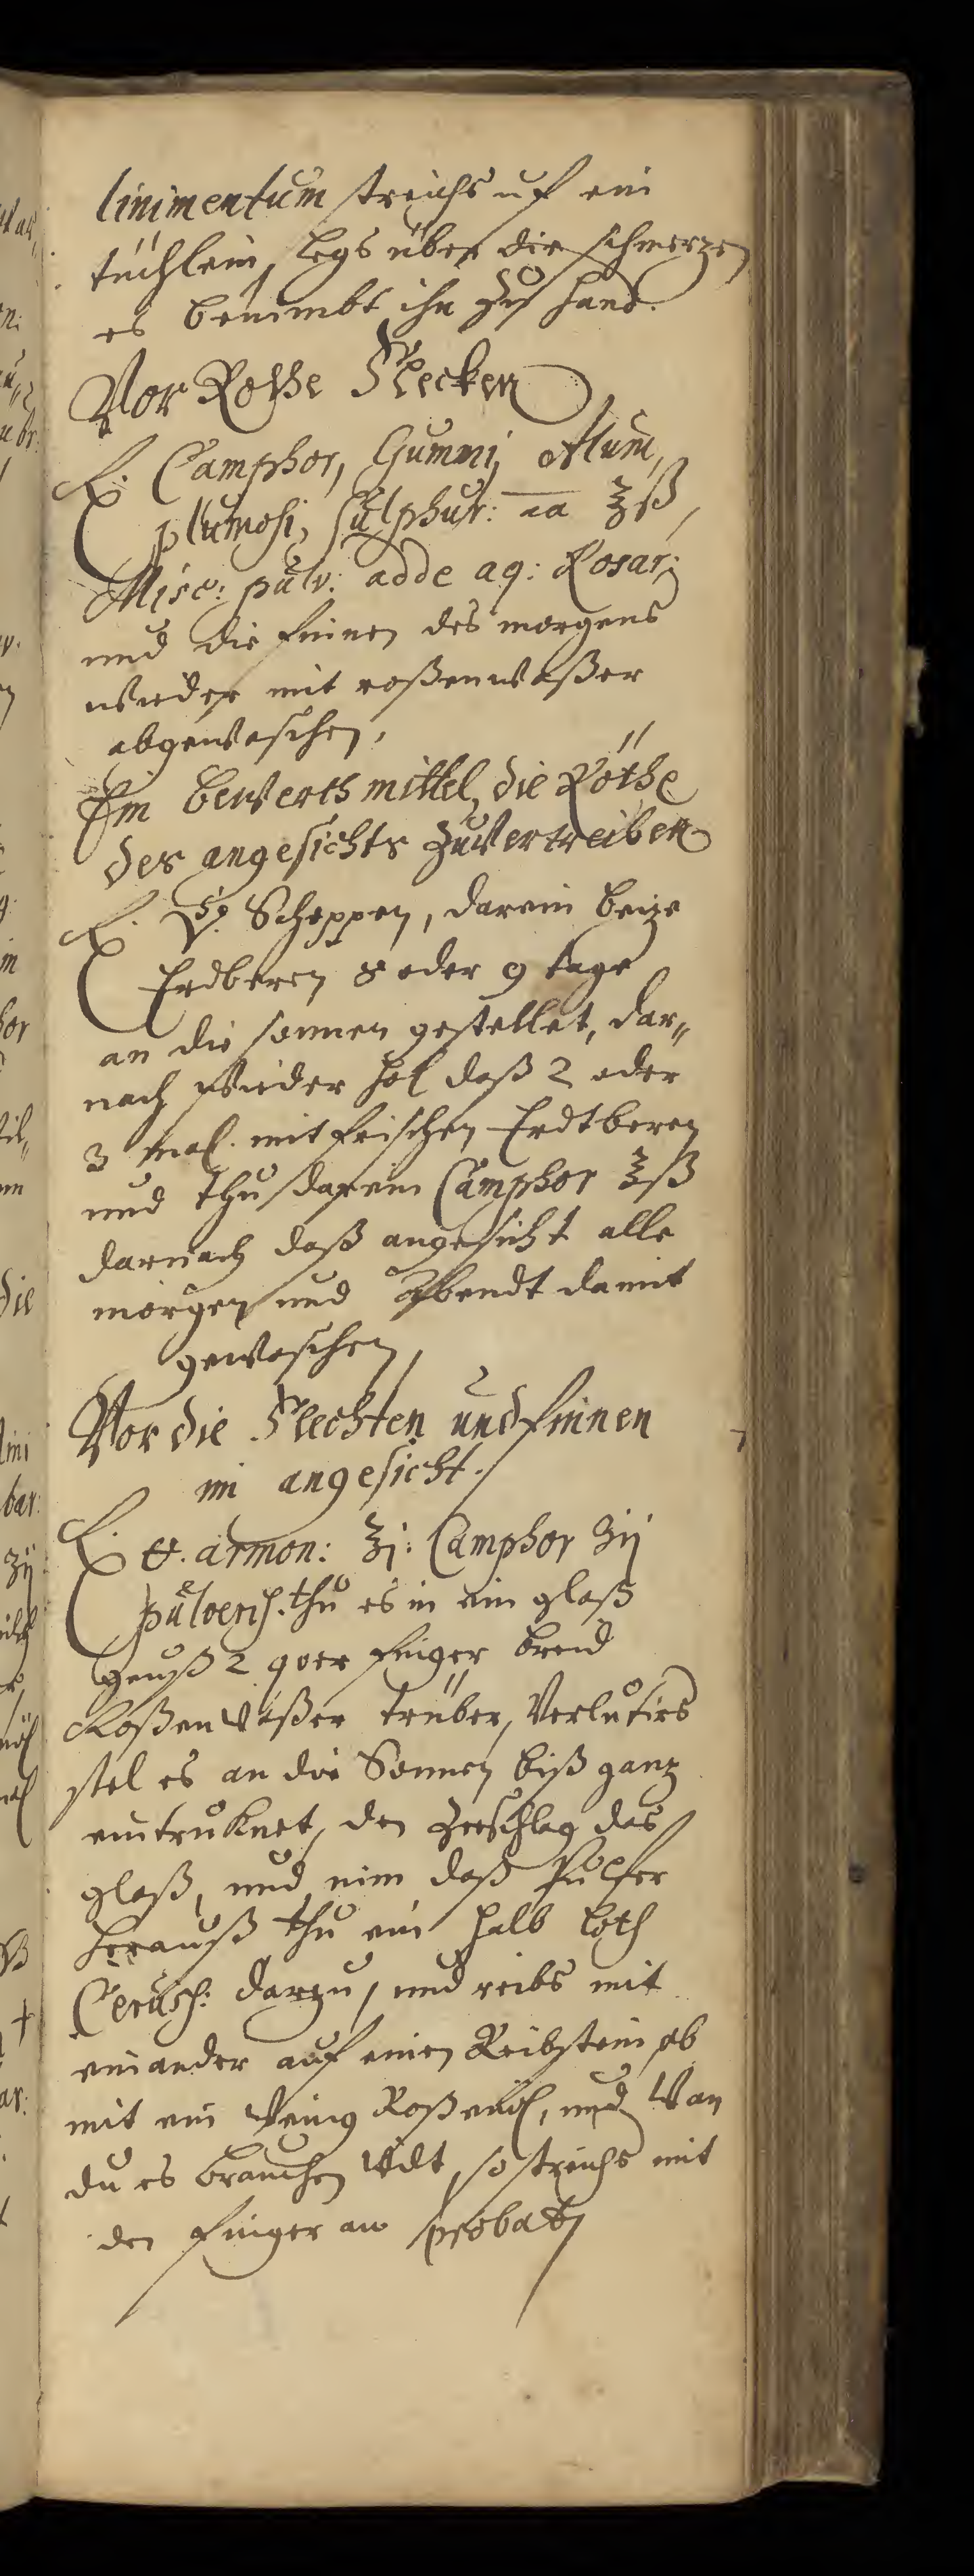 linimentum streichs uf ein
tüchlein, legs über die schmerzen
es benimbt ihn zu hand.
Vor Rothe Flecken
℞. Camphor, Gummi, Alum,
plumosi, Sulphur: aa ʒß,
Misc: pulv: adde aq: Rosar:
und die finnen des morgens
wieder mit roßenwaßer
abgewaschen,
Ein bewerth mittel, die Röthe
des angesichts zuvertreiben
℞. Scheppen, darein beize
Erdberen 8 oder 9 tage
an die sonnen gestellet, dar„
nach wieder hol daß 2 oder
3 mal. mit frischen Erdtberen
und thu darein Camphor ʒß
darnach daß angesicht alle
morgen und Abendt damit
gewaschen,
Vor die Flechten und finnen
im angesicht.
℞ armon: ʒj: Camphor ʒij
pulveris. thu es in ein glaß
geuß 2 qver finger breid
Roßenwaßer trüber, Verlutirs
stel es an die Sonnen biß ganz
eintruknet, den zerschlag das
glaß, und nim daß Pulfer
herauß thu ein halb loth
Ceruss: darzu, und reibs mit
einander auf einen Reibstein ab
mit ein wenig Roßenöl, und Wan
du es brauchen wilt, so streichs mit
den finger an probat,